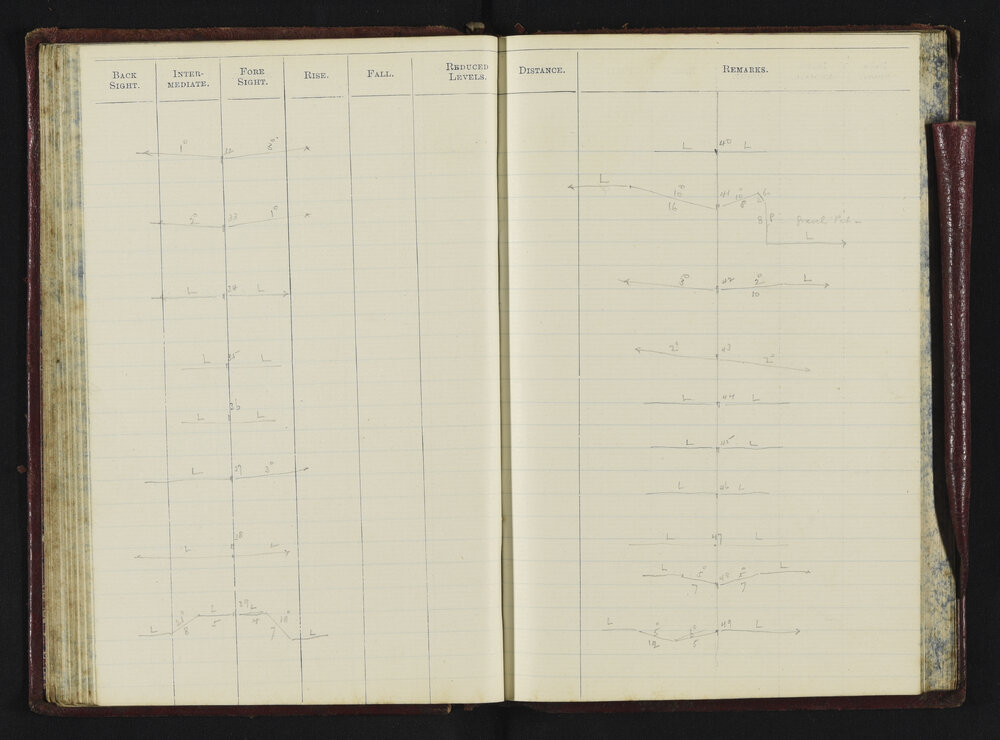 BACK SIGHT.
INTER-MEDIATE.
FORE SIGHT.
RISE.
FALL.
REDUCED LEVELS.
1° 32 3°
2° 33 1°
L 34 L
L 35 L
L 36 L
L 37 3°
L 38 L
L 8 L 5 39 L 4 7 10° L
DISTANCE.
REMARKS.
L 40 L
L 10° 16 41 10° 8 8 Gravel Pit L
3° 42 2° 10 L
2° 43 2°
L 44 L
L 45 L
L 46 L
L 47 L
L 5° 7 48 5° 7 L
L 5° 12 5 49 L